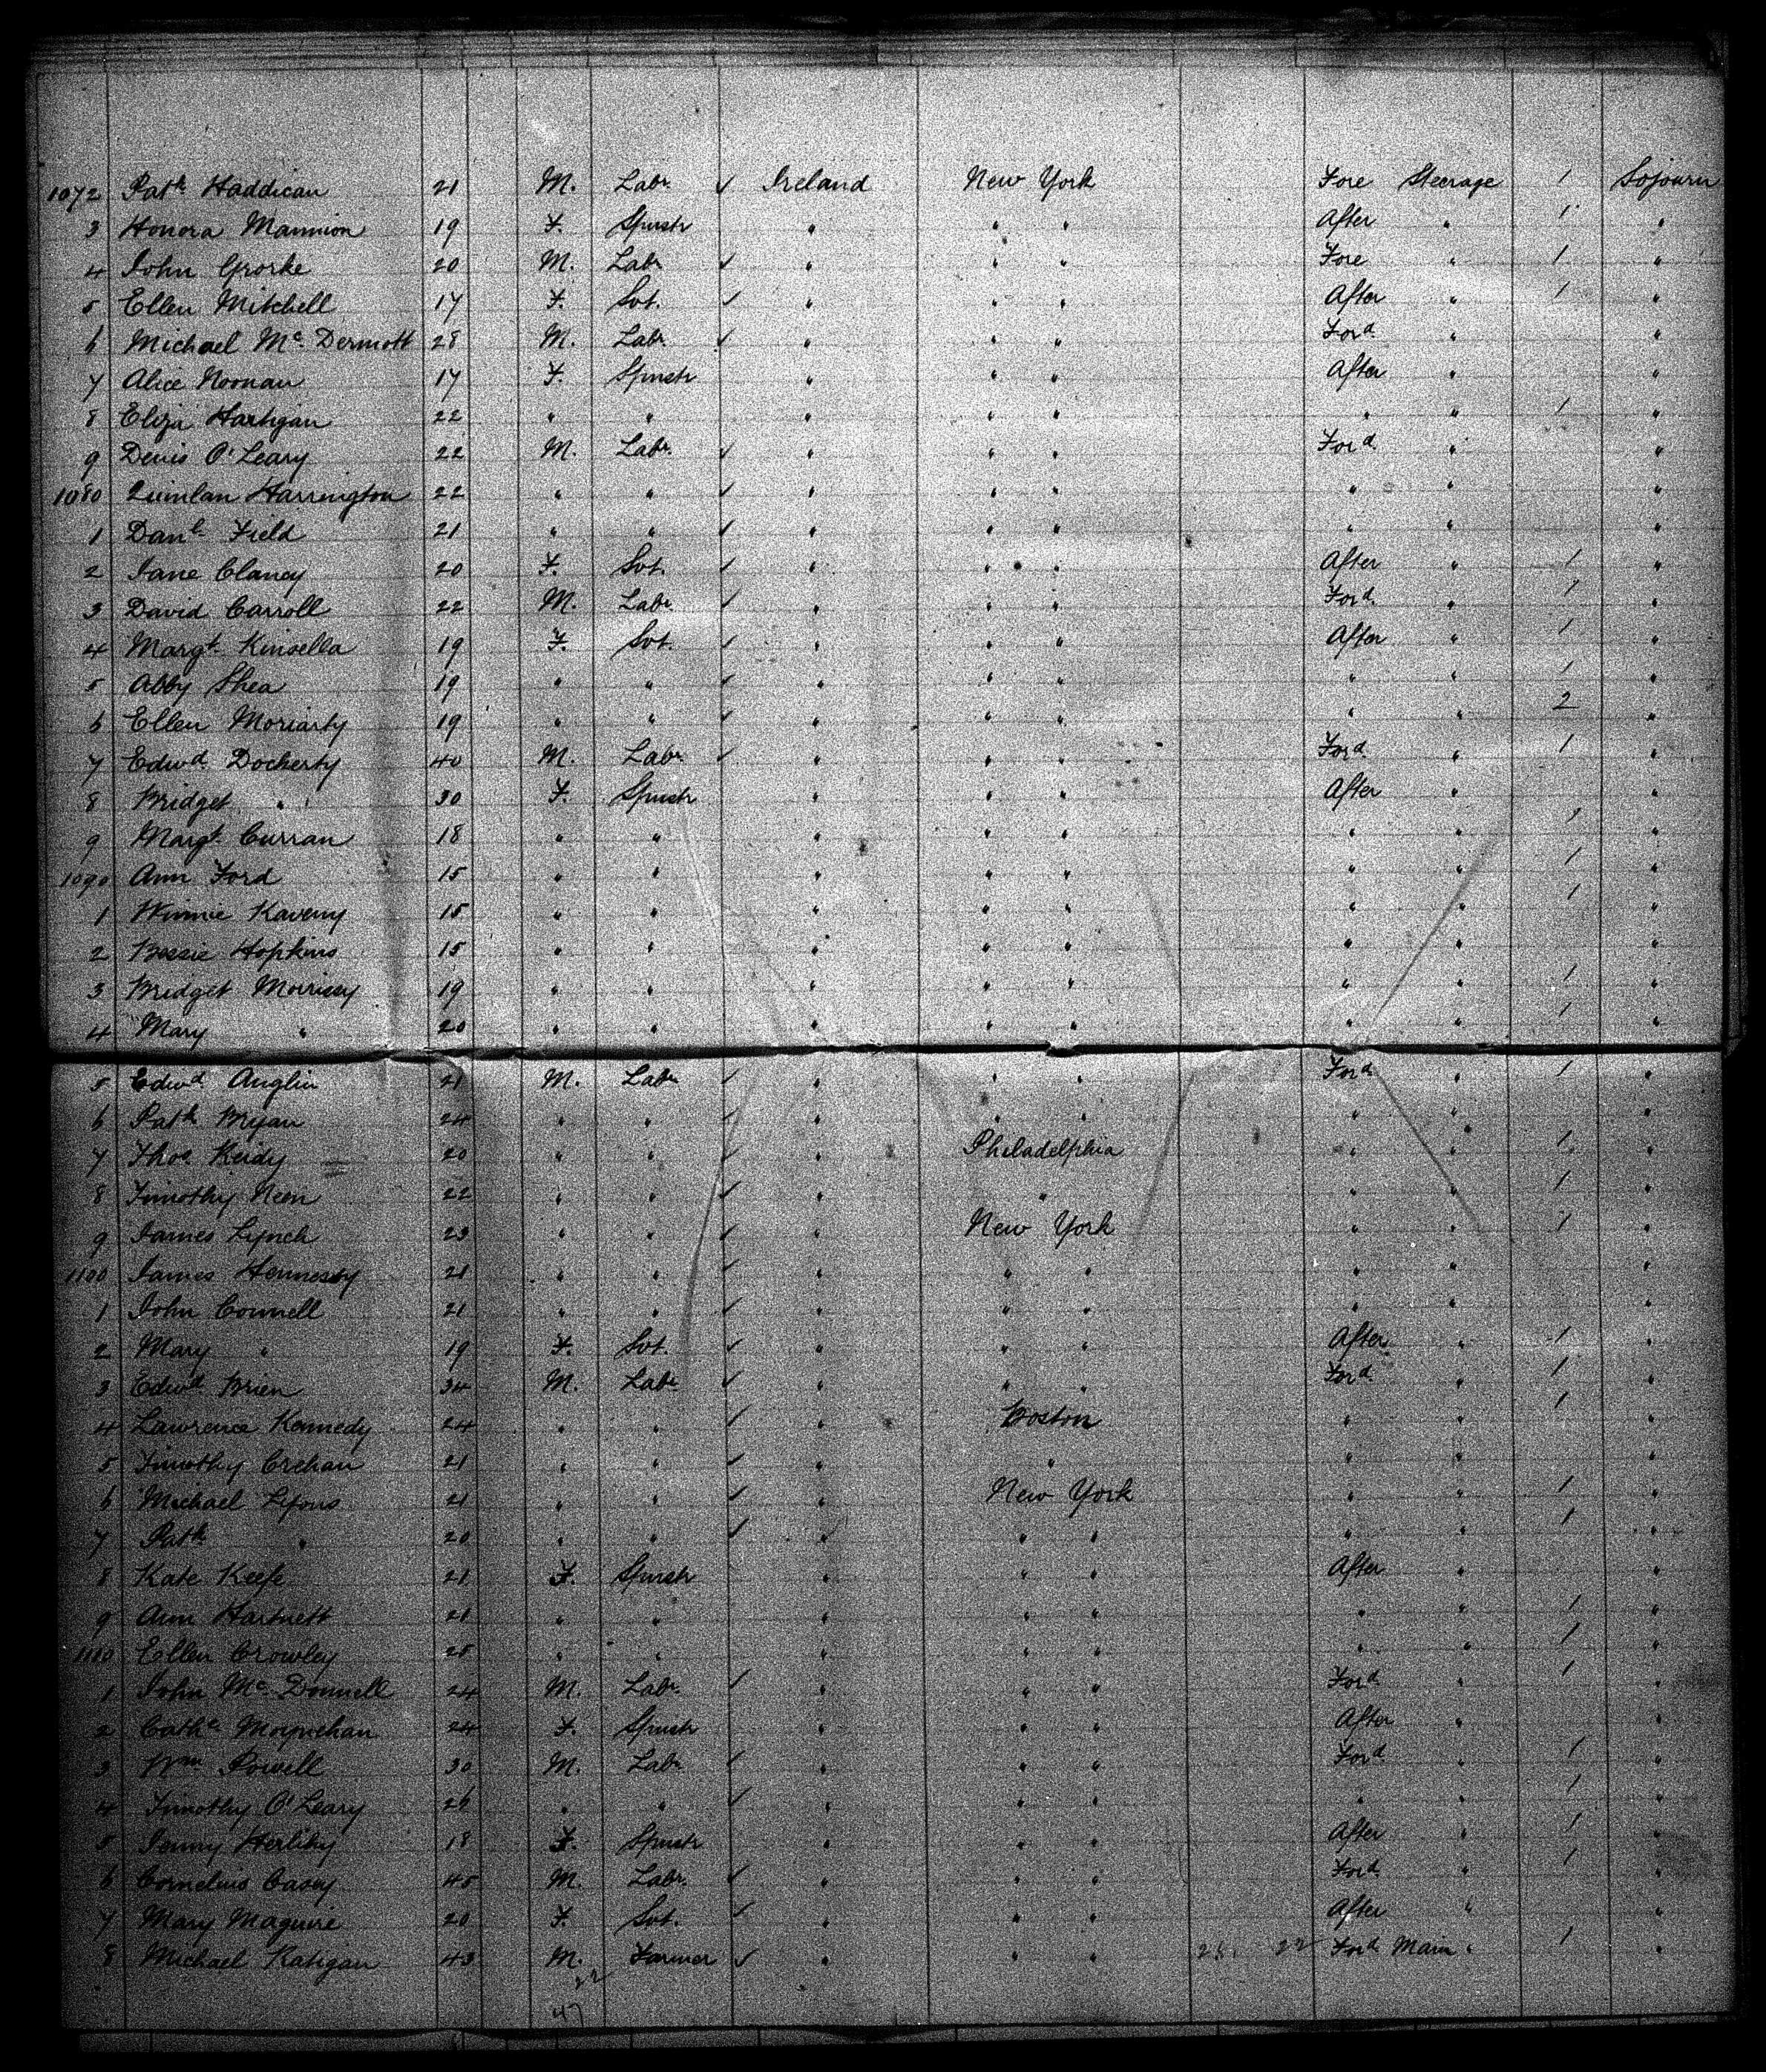 1072 Patk Haddican 21 M. Labr. ✓ Ireland New York Fore Steerage 1 Sojourn
3 Honora Mannion 19 F. Spinstr " " " After " 1 "
4 John Grorke 20 M. Labr ✓ " " " Fore " 1 "
5 Ellen Mitchell 17 F. Svt. ✓ " " " After " 1 "
6 Michael Mc Dermott 28 M. Labr. ✓ " " " Ford. " "
7 Alice Noonan 17 F. Spinstr " " " After " "
8 Eliza Hartigan 22 " " " " " " " 1 "
9 Denis O'Leary 22 M. Labr. ✓ " " " Ford. " "
1080 Quinlan Harrington 22 " " ✓ " " " " " "
1 Danl. Field 21 " " ✓ " " " " " "
2 Jane Clancy 20 F. Svt. ✓ " " " After " 1 "
3 David Carroll 22 M. Labr. ✓ " " " Ford. " 1 "
4 Margt. Kinsella 19 F. Svt. ✓ " " " After " 1 "
5 Abby Shea 19 " " ✓ " " " " " 1 "
6 Ellen Moriarty 19 " " ✓ " " " " " 2 "
7 Edwd. Docherty 40 M. Labr. ✓ " " " Ford. " 1 "
8 Bridget " 30 F. Spinstr " " " After " "
9 Margt. Curran 18 " " " " " " " 1 "
1090 Ann Ford 15 " " " " " " " 1 "
1 Winnie Kaveny 15 " " " " " " " 1 "
2 Bessie Hopkins 15 " " " " " " " "
3 Bridget Morrissy 19 " " " " " " " 1 "
4 Mary " 20 " " " " " " " 1 "
5 Edwd Anglin 21 M. Labr ✓ " " " Ford. " 1 "
6 Patk Bryan 24 " " ✓ " " " " " "
7 Thos. Reidy 20 " " ✓ " Philadelphia " " 1 "
8 Timothy Neen 22 " " ✓ " " " " 1 "
9 James Lynch 23 " " ✓ " New York " " 1 "
1100 James Hennessy 21 " " ✓ " " " " " "
1 John Connell 21 " " ✓ " " " " " "
2 Mary " 19 F. Svt. ✓ " " " After " 1 "
3 Edwd Brien 34 M. Labr ✓ " " " Ford. " 1 "
4 Lawrence Kennedy 24 " " ✓ " Boston " " 1 "
5 Timothy Crehan 21 " " ✓ " " " " "
6 Michael Lyons 21 " " ✓ " New York " " 1 "
7 Patk " 20 " " ✓ " " " " " 1 "
8 Kate Keefe 21 F. Spinstr " " " After " "
9 Ann Hartnett 21 " " " " " " " 1 "
1110 Ellen Crowley 25 " " " " " " " 1 "
1 John Mc Donnell 24 M. Labr. ✓ " " " Ford. " 1 "
2 Cathe Moynehan 24 F. Spinstr " " " After " "
3 Wm Powell 30 M. Labr ✓ " " " Ford " 1 "
4 Timothy O'Leary 26 " " ✓ " " " " " 1 "
5 Jenny Herlihy 18 F. Spinstr " " " After " 1 "
6 Cornelius Casey 45 M. Labr. ✓ " " " Ford. " 1 "
7 Mary Maguire 20 F. Svt. ✓ " " " After " "
8 Michael Ratigan 43 M. Farmer ✓ " " " 22 Ford. Main " 1 "
47